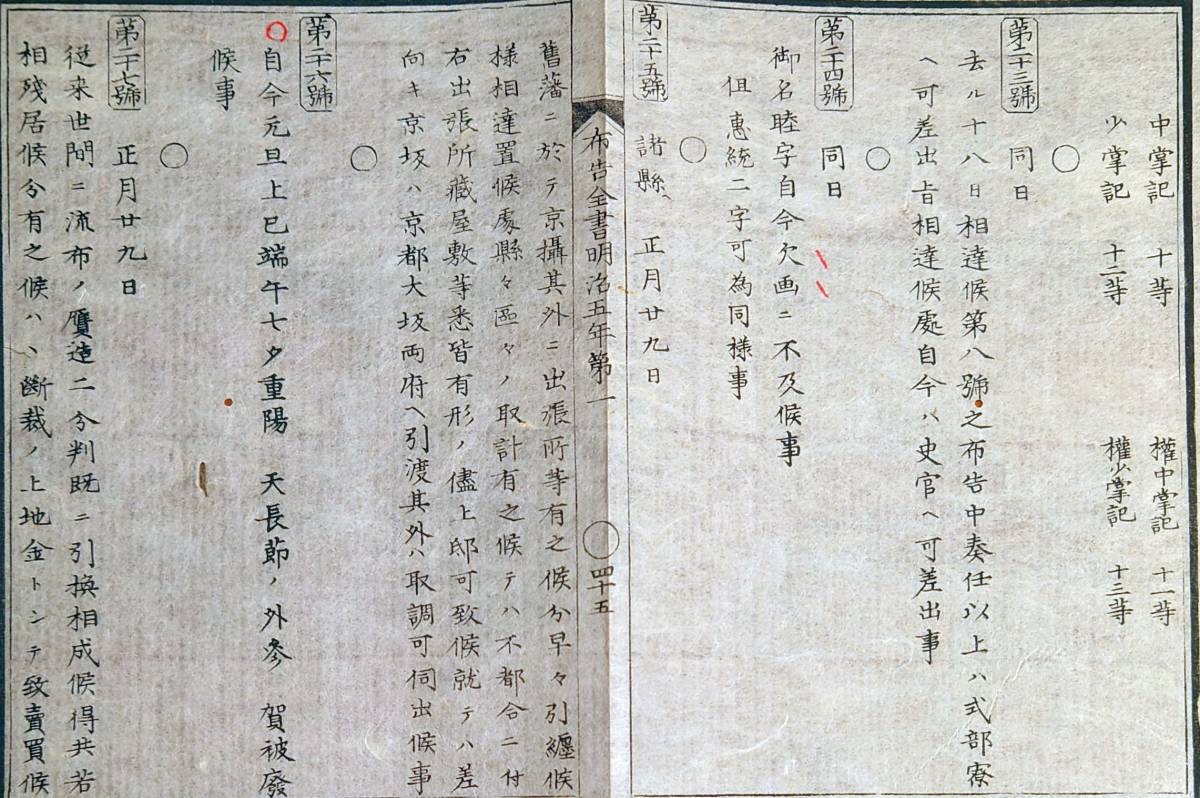 中掌記 十等 權中掌記 十一等
少掌記 十二等 權少掌記 十三等
○
第二十三號 同日
去ル十八日相達候第八號之布告中奏任以上ハ式部寮
ヘ可差出旨相達候處自今ハ史官ヘ可差出事
○
第二十四號 同日
御名睦字自今欠画ニ不及候事
但惠統二字可為同様事
○
第二十五號 諸縣、 正月廿九日
舊藩ニ於テ京攝其外ニ出張所等有之候分早々引纏候
様相達置候處縣々區々ノ取計有之候テハ不都合ニ付
右出張所藏屋敷等悉皆有形ノ儘上邸可致候就テハ差
向キ京坂ハ京都大坂両府ヘ引渡其外ハ取調可伺出候事
布告全書明治五年第一 ○ 四十五
○
第二十六號
自今元旦上巳端午七夕重陽 天長節ノ外參 賀被廢
候事
○
第二十七號 正月廿九日
従来世間ニ流布ノ贋造二分判既ニ引換相成候得共若
相残居候分有之候ハヽ斷裁ノ上地金トシテ致賣買候